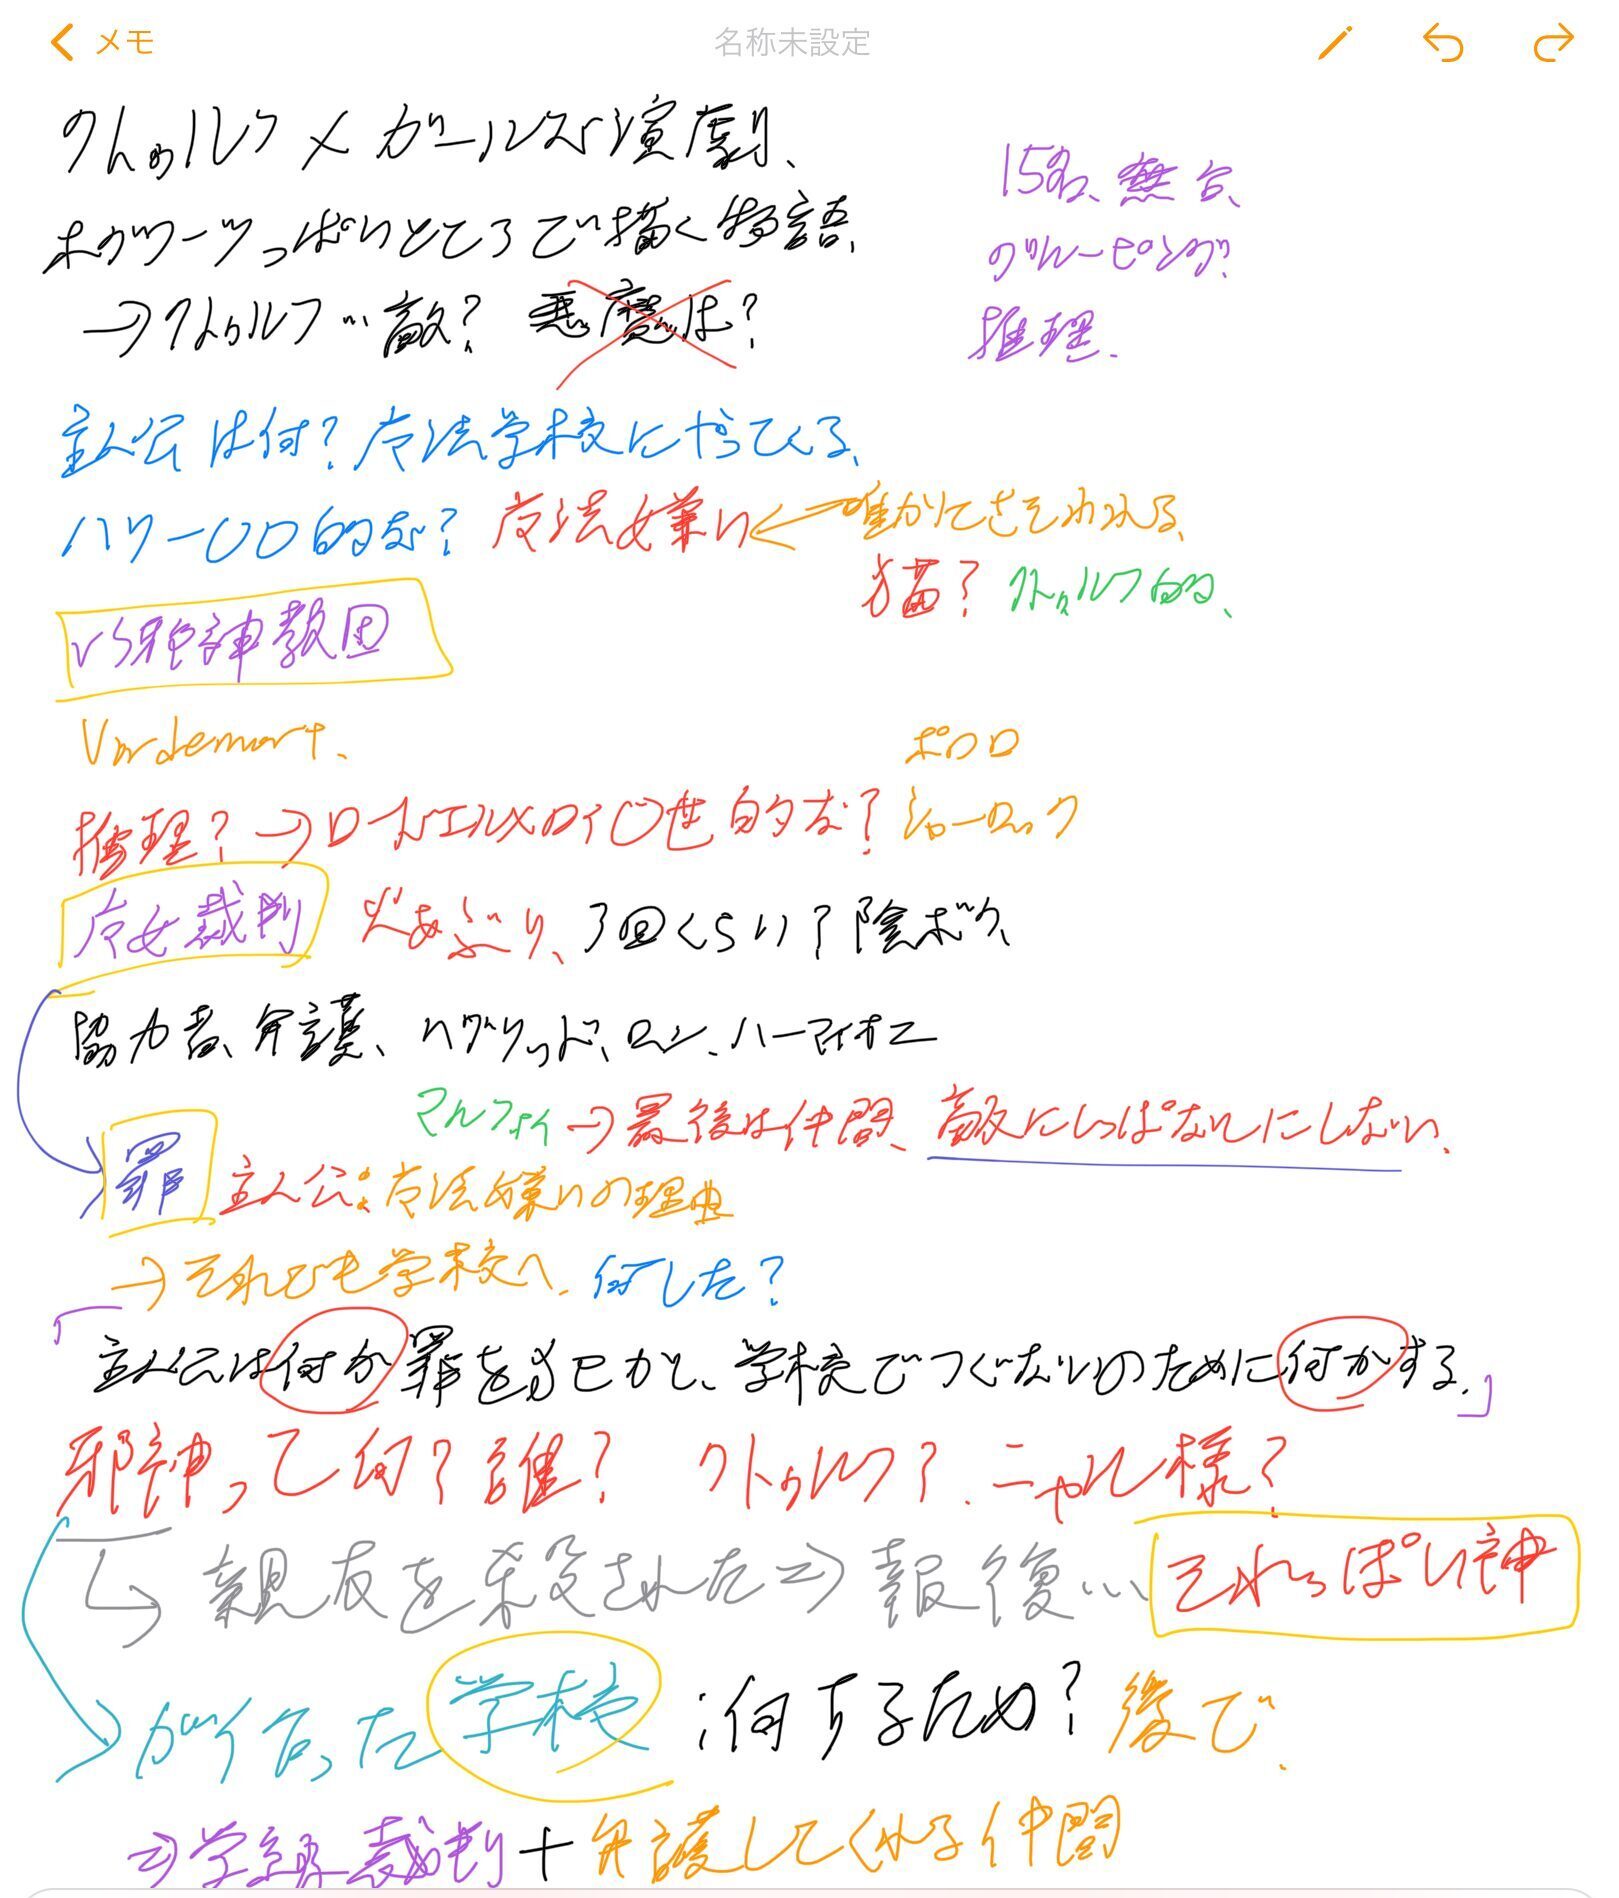 メモ
名称未設定
クトゥルフ×ガールズ演劇、
15名、舞台、
ホグワーツっぽいところで描く物語、
グルーピング、
→クトゥルフ…敵？ 悪魔は？
推理、
主人公は何？ 魔法学校にやってくる、
ハリー〇〇的な？ 魔法女嫌い ← 誰かにさそわれる、
猫？ クトゥルフ的、
VS邪神教団
Vordemort、
ポワロ
推理？→ロードエルメロイⅡ世的な？ シャーロック
魔女裁判 火あぶり、3回くらい？ 陰ボツ、
協力者、弁護、ハグリッド、ロン、ハーマイオニー
マルフォイ→最後は仲間、敵にしっぱなしにしない、
罪 主人公：魔法嫌いの理由
→それでも学校へ、何した？
「主人公は何か罪を犯かし、学校でつぐないのために何かする。」
邪神って何？誰？ クトゥルフ？、ニャル様？
↳親友を未殺された⇒報復… それっぽい神
→が作った学校：何するため？ 後で、
⇒学級裁判＋弁護してくれる仲間